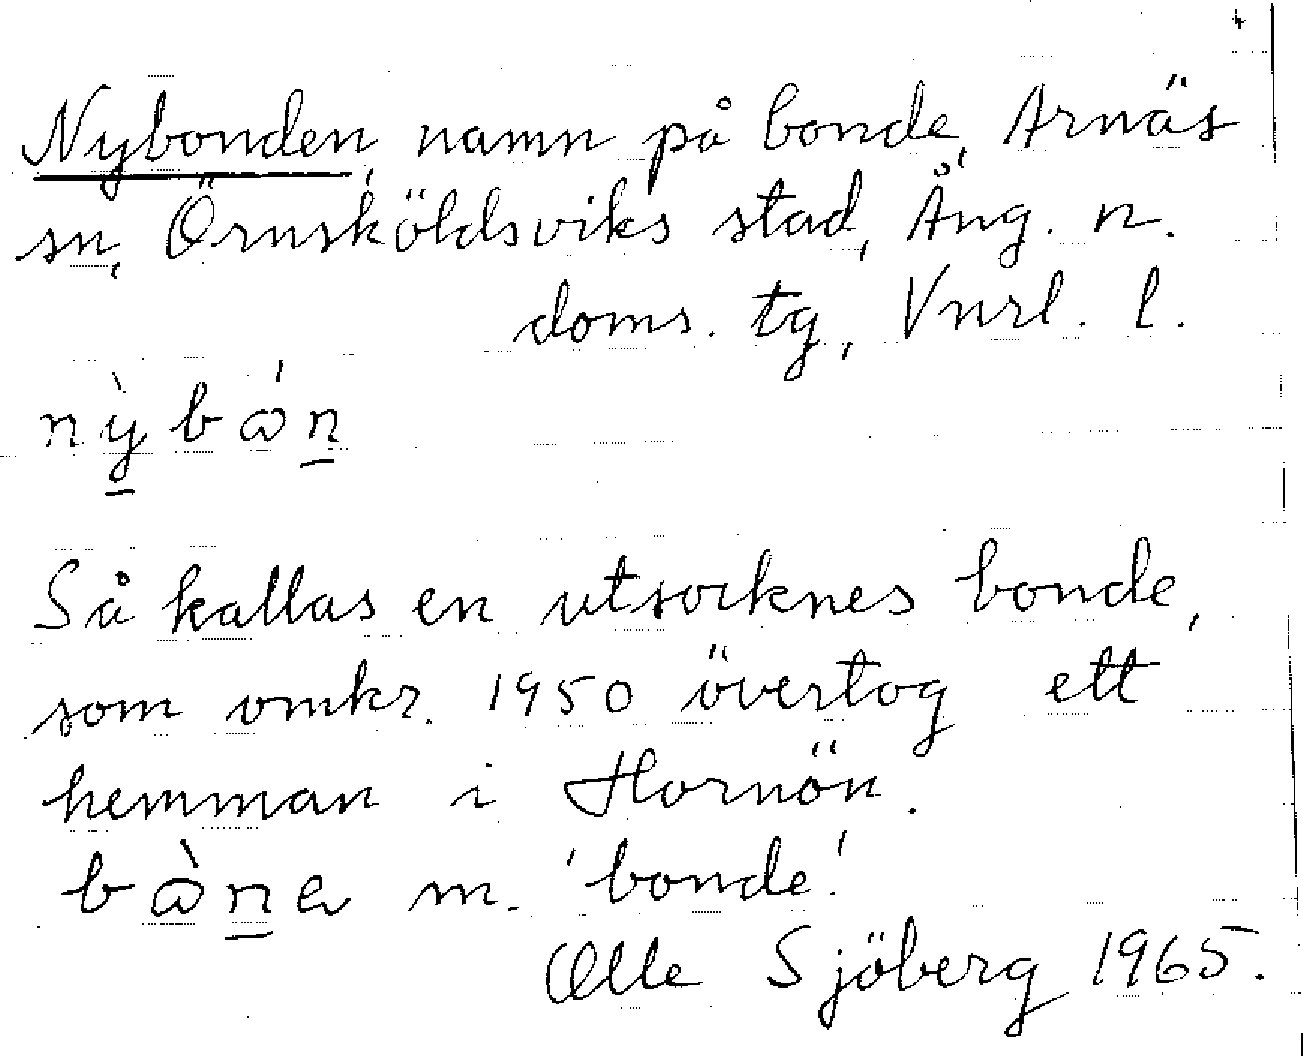 Nybonden, namn på bonde, Arnäs
sn, Örnsköldsviks stad, Ång. n.
doms. tg, Vnrl. l.
nỳbán
Så kallas en utsocknes bonde,
som omkr. 1950 övertog ett
hemman i Hornön.
bàna m. 'bonde'.
Olle Sjöberg 1965.